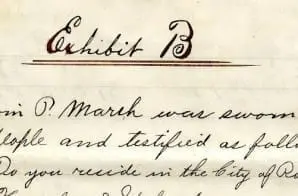 Exhibit B
P. March was sworn
and testified as
Do you reside in the City of